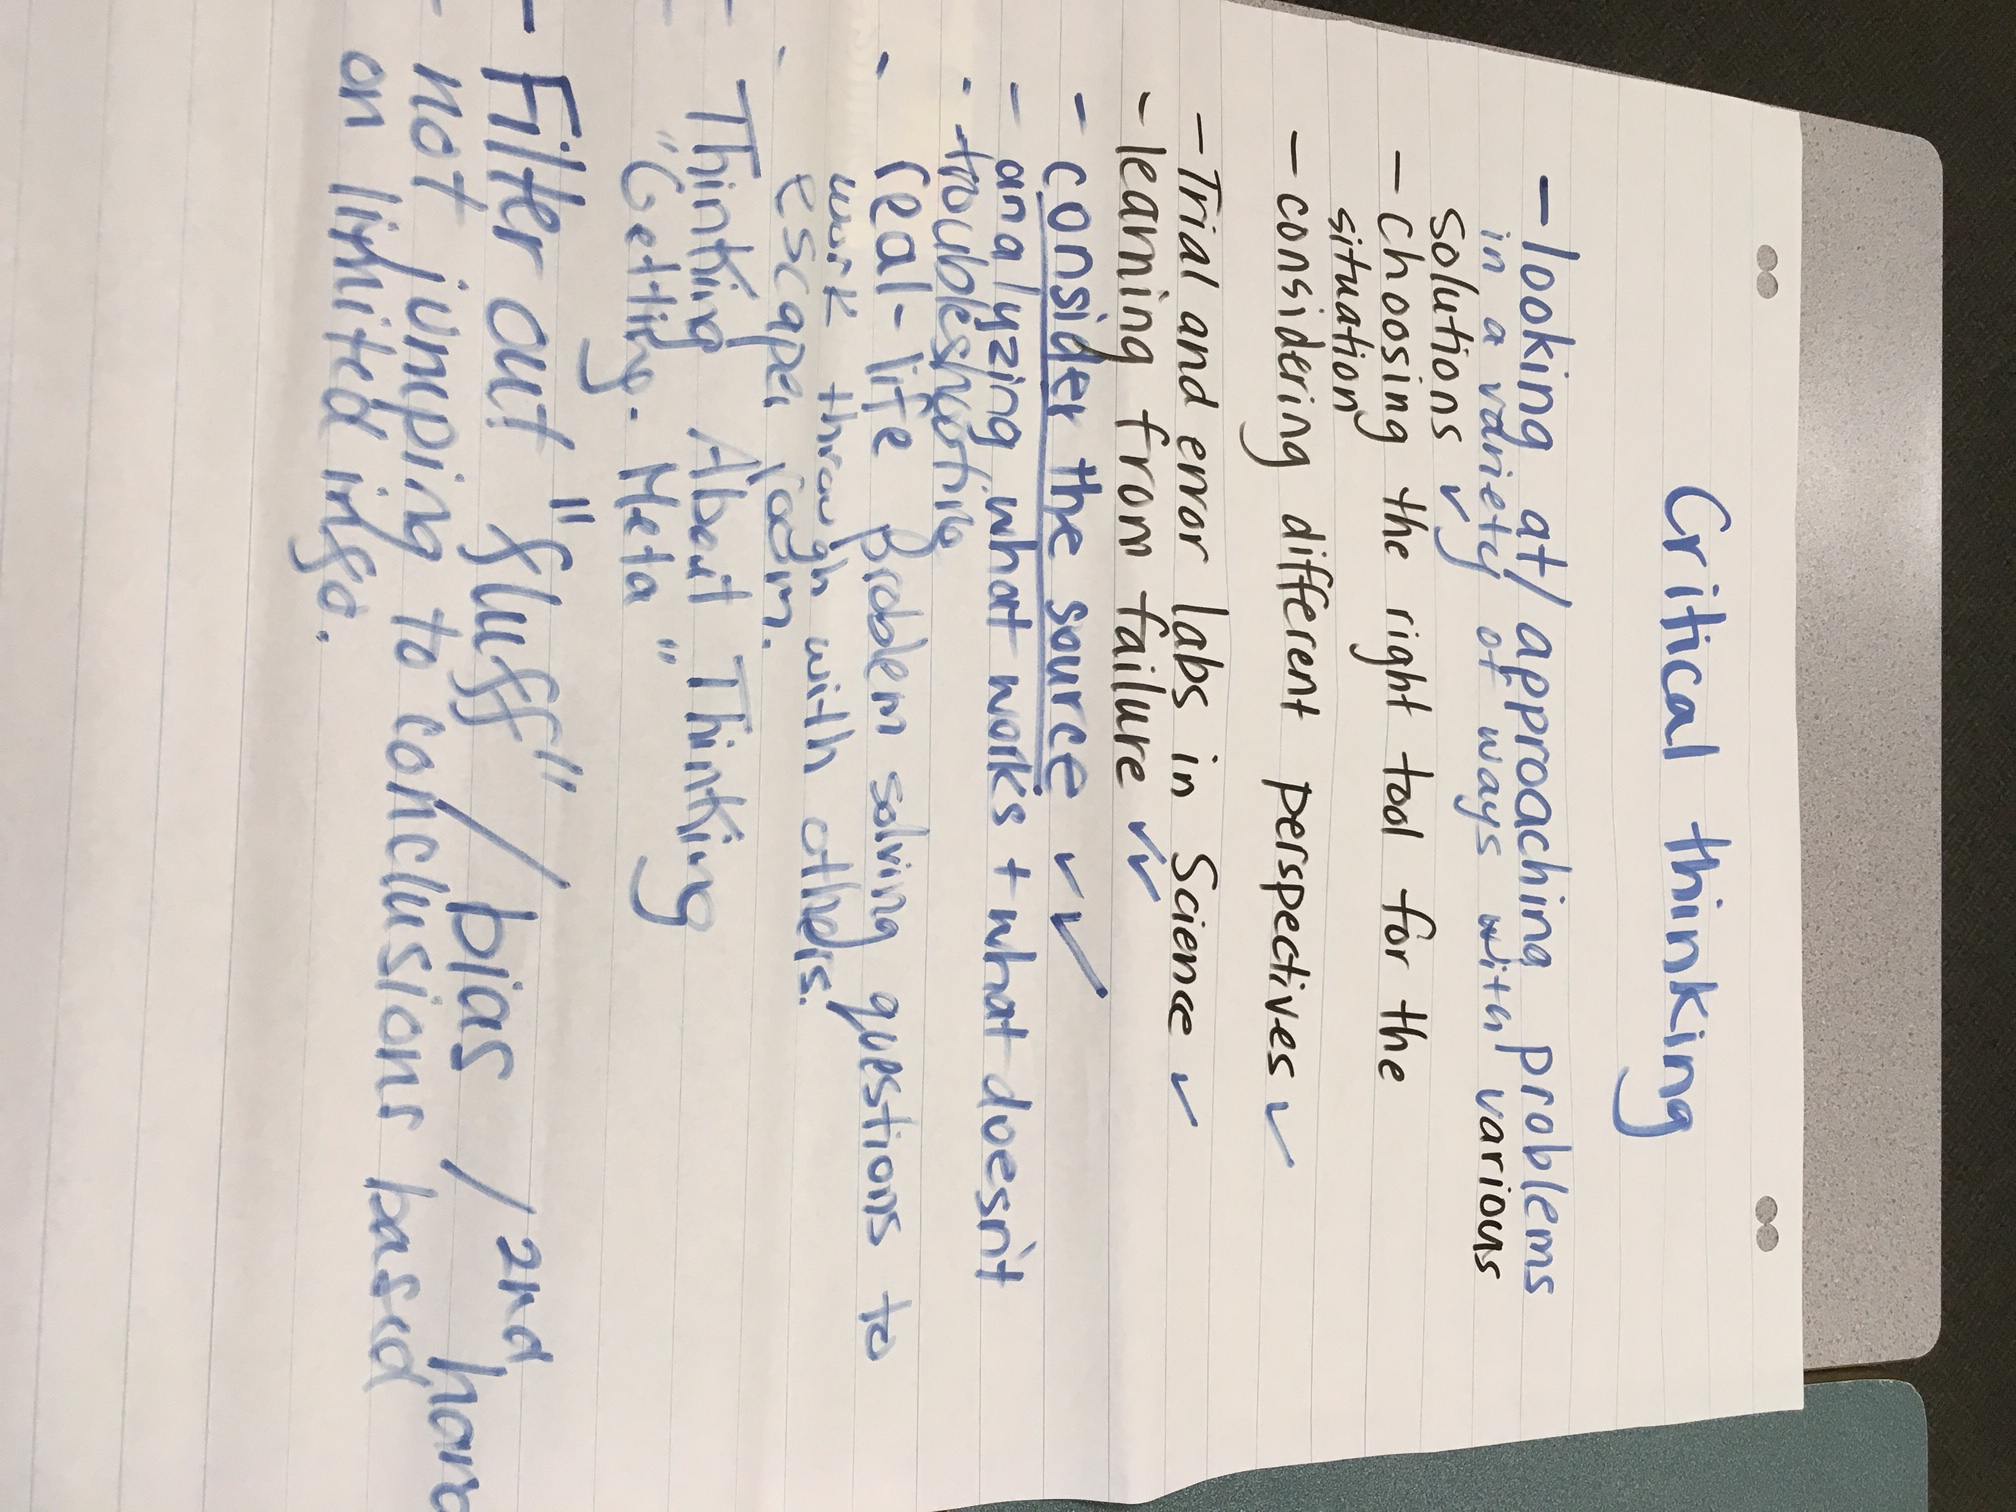 Critical thinking
- looking at/ approaching problems
in a variety of ways with various
solutions ✓
- Choosing the right tool for the
situation
- considering different perspectives ✓
- Trial and error labs in Science ✓
- learning from failure ✓✓
- consider the source ✓✓
- analyzing what works + what doesn't
- troubleshooting
- real-life problem solving questions to
work through with others.
- escape room.
- Thinking About Thinking
- "Getting Meta"
- Filter out "fluff" / bias / 2nd hand
- not jumping to conclusions based
on limited info.